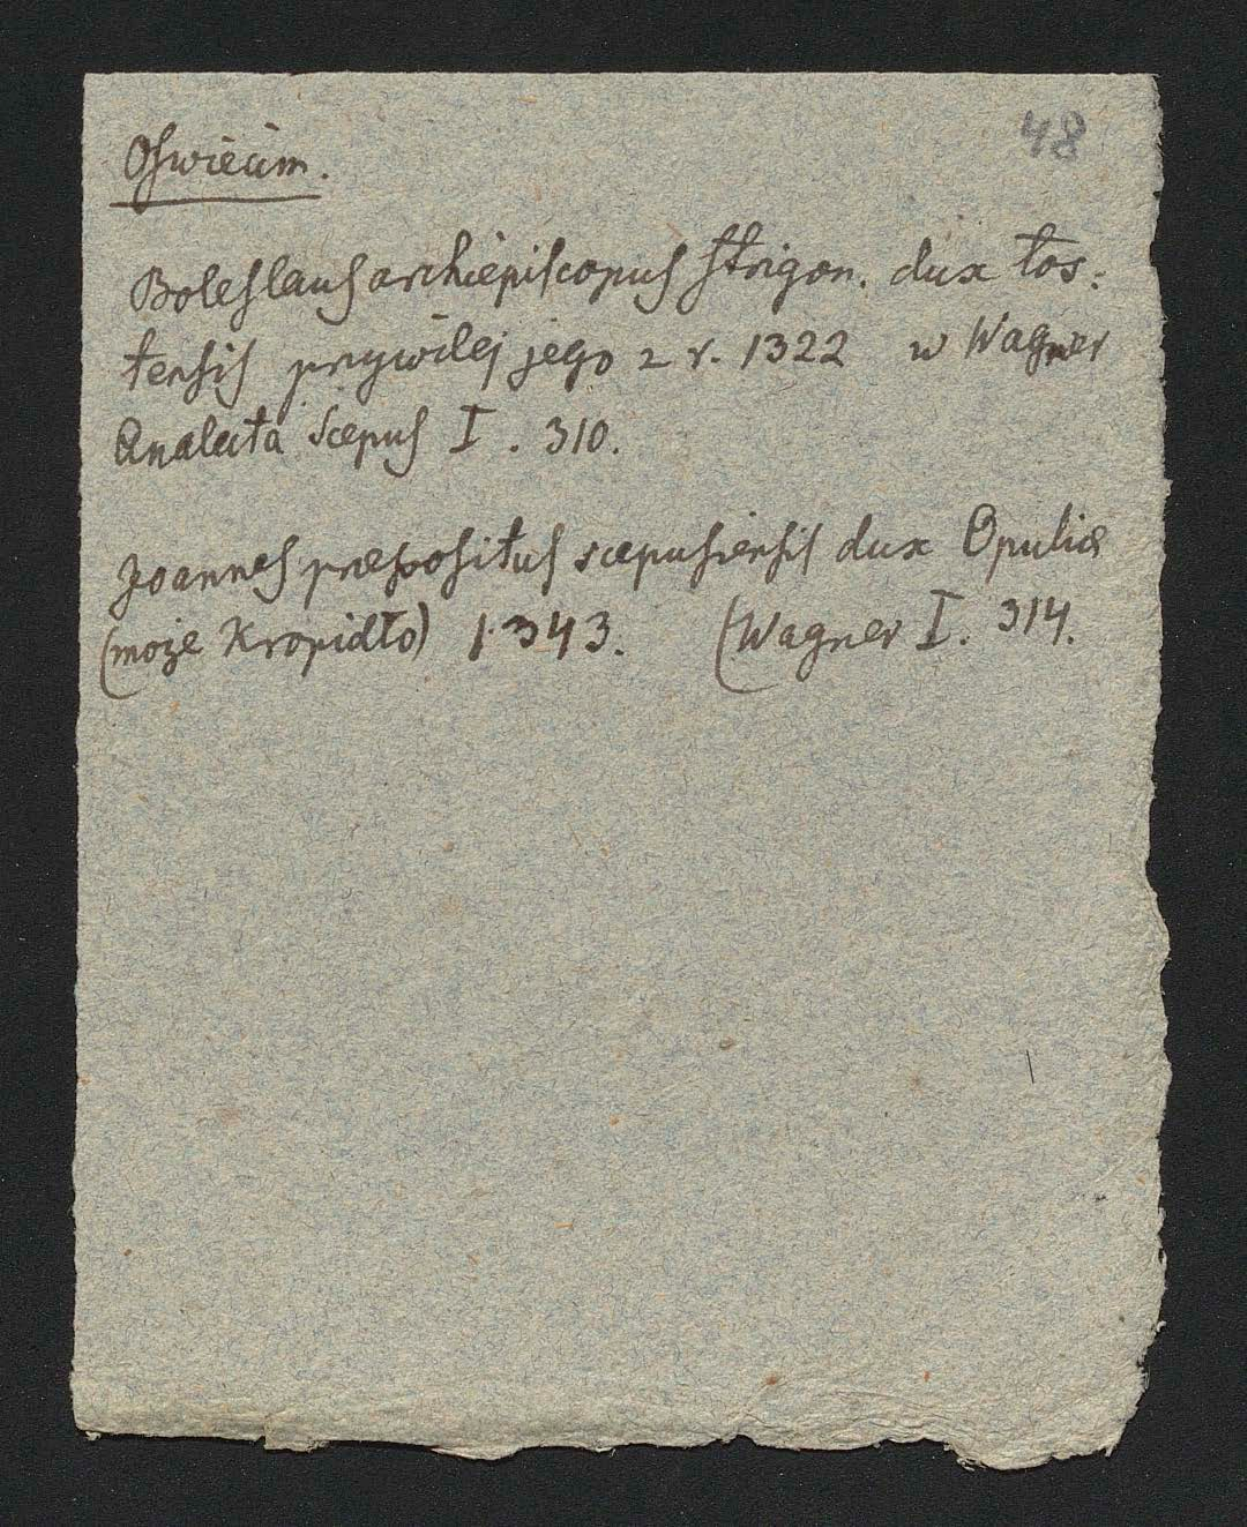 48
Oswiecim.
Boleslaus archiepiscopus Strigon. dux tos:
tensis przywilej jego z r. 1322 w Wagner
Analecta Scepus I. 310.
Joannes praepositus scepusiensis dux Opuliae
(może Kropidło) 1343. (Wagner I. 314.